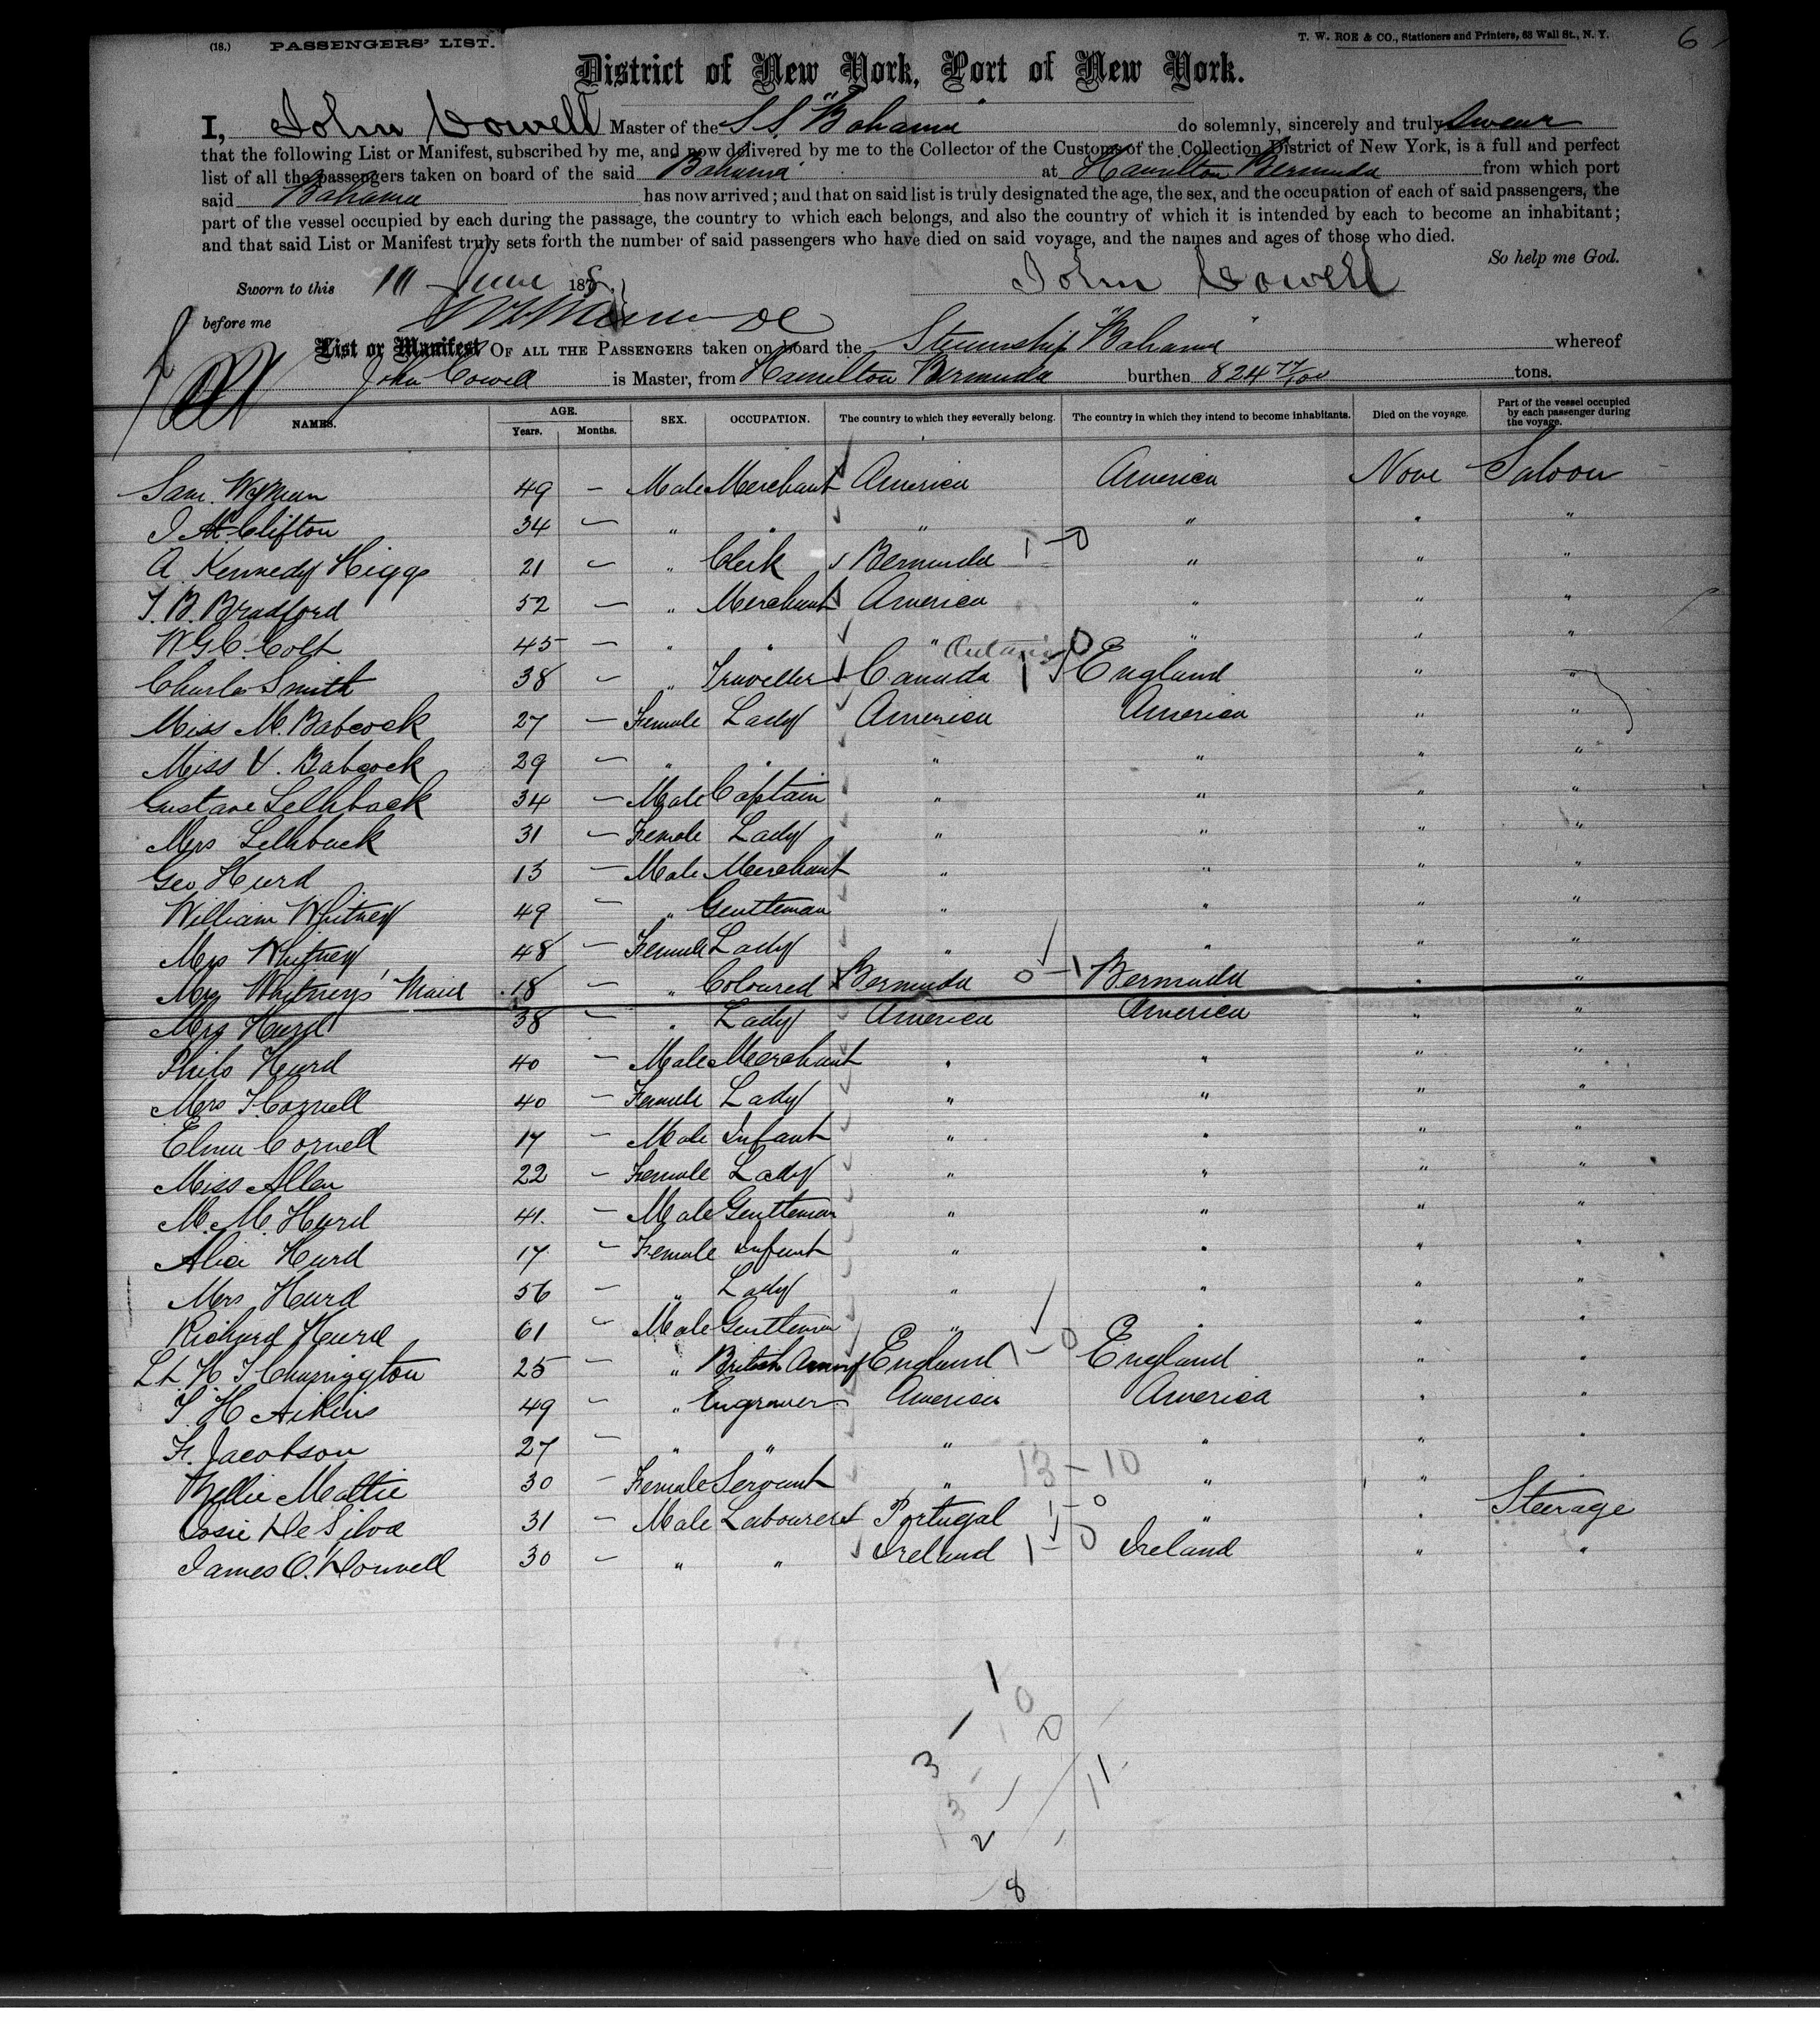 (18.) PASSENGERS' LIST. T. W. ROE & CO., Stationers and Printers, 63 Wall St., N. Y. 6
District of New York, Port of New York.
I, John Cowell Master of the S.S. "Bahama" do solemnly, sincerely and truly Swear
that the following List or Manifest, subscribed by me, and now delivered by me to the Collector of the Customs of the Collection District of New York, is a full and perfect
list of all the passengers taken on board of the said Bahama at Hamilton Bermuda from which port
said Bahama has now arrived; and that on said list is truly designated the age, the sex, and the occupation of each of said passengers, the
part of the vessel occupied by each during the passage, the country to which each belongs, and also the country of which it is intended by each to become an inhabitant;
and that said List or Manifest truly sets forth the number of said passengers who have died on said voyage, and the names and ages of those who died.
So help me God.
Sworn to this June 187 John Cowell
before me
List or Manifest OF ALL THE PASSENGERS taken on board the Steamship "Bahama" whereof
John Cowell is Master, from Hamilton Bermuda burthen 824 77/100 tons.
NAMES. AGE. Years. Months. SEX. OCCUPATION. The country to which they severally belong. The country in which they intend to become inhabitants. Died on the voyage. Part of the vessel occupied by each passenger during the voyage.
Sam. Wyman 49 – Male Merchant America America None Saloon
Clifton 34 – " " " " " "
A. Kennedy Higgs 21 – " Clerk Bermuda 1-0 " " "
T. B. Bradford 52 – " Merchant America " " "
W G C. Colt 45 – " " " " " "
Charles Smith 38 – " Traveller Canada Ontario 1 0 England " "
Miss M. Babcock 27 – Female Lady America America " "
Miss V. Babcock 29 – " " " " " "
Gustave Lellback 34 – Male Captain " " " "
Mrs Lellback 31 – Female Lady " " " "
Geo Hurd 13 – Male Merchant " " " "
William Whitney 49 – " Gentleman " " " "
Mrs Whitney 48 – Female Lady " " " "
Mrs Whitneys' Maid 18 – " Coloured Bermuda 0-1 Bermuda " "
Mrs Hurd 38 – " Lady America America " "
Philo Hurd 40 – Male Merchant " " " "
Mrs T. Cornell 40 – Female Lady " " " "
Cornell 17 – Male Infant " " " "
Miss Allen 22 – Female Lady " " " "
M. M. Hurd 41. – Male Gentleman " " " "
Alice Hurd 17 – Female Infant " " " "
Mrs Hurd 56 – " Lady " " " "
Richard Hurd 61 – Male Gentleman " " " "
Lt H T Charrington 25 – " British Army England 1-0 England " "
T. H. Aikins 49 – " Engraver America America " "
Fr. Jacobson 27 – " " " " " "
Mattie 30 – Female Servant " 13-10 " "
De Silva 31 – Male Labourer Portugal 1-0 " " Steerage
James O'Donnell 30 – " " Ireland 1-0 Ireland " "
1
0
0
3
11
2
8